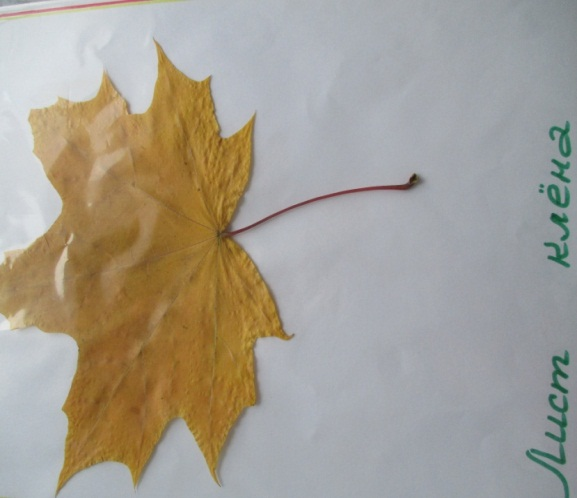 Лист клёна